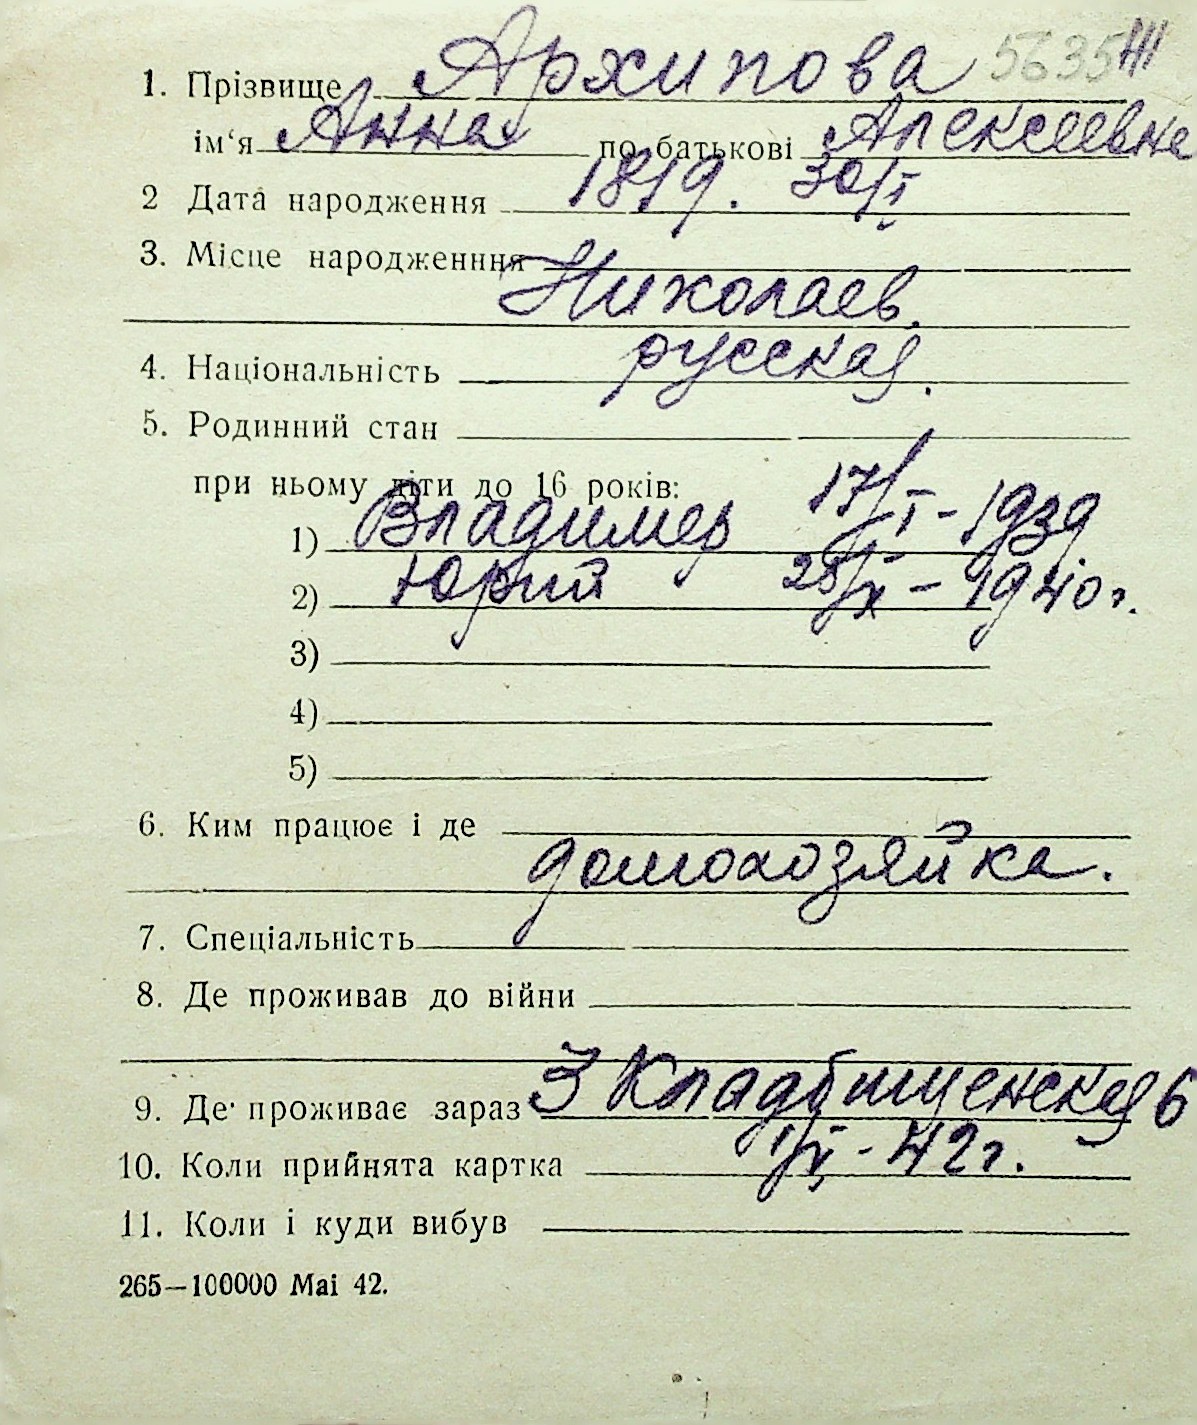 5635 III
1. Прізвище Архипова
ім‘я Анна по батькові Алексеевна
2 Дата народження 1819. 30/I
3. Місце народженння
Николаев.
4. Національність русская.
5. Родинний стан
при ньому діти до 16 років:
1) Владимер 17/I-1939
2) Юрий 28/IX-1940г.
3)
4)
5)
6. Ким працює і де
домохозяйка.
7. Спеціальність
8. Де проживав до війни
9. Де проживає зараз 3 Кладбищенская 6
10. Коли прийнята картка 1/V-42г.
11. Коли і куди вибув
265—100000 Маі 42.